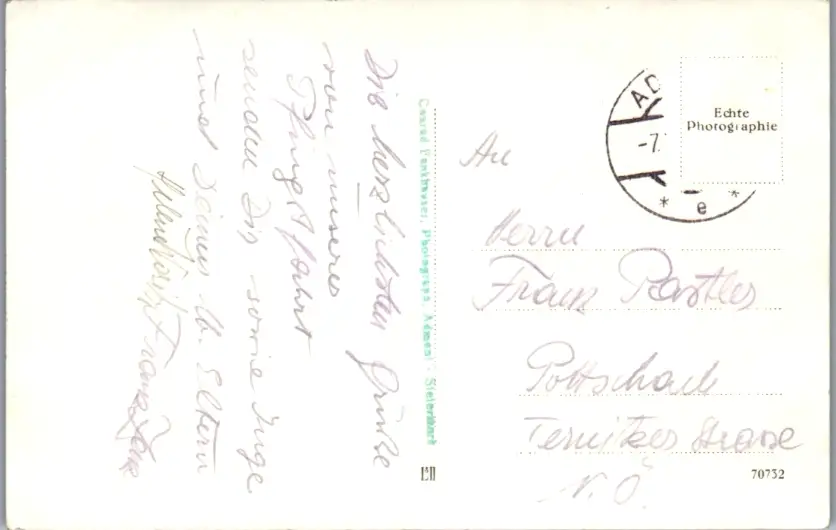 Die herzlichsten Grüße
von unserer
Pfingstfahrt
senden Dir sowie Inge
und Deinen lb. Eltern
Franz
Conrad Fankhauser, Photograph, Admont - Steiermark
AD
-7.
* e *
Echte
Photographie
An
Herrn
Franz
Pottschach
Ternitzer Strasse
N.Ö.
70732